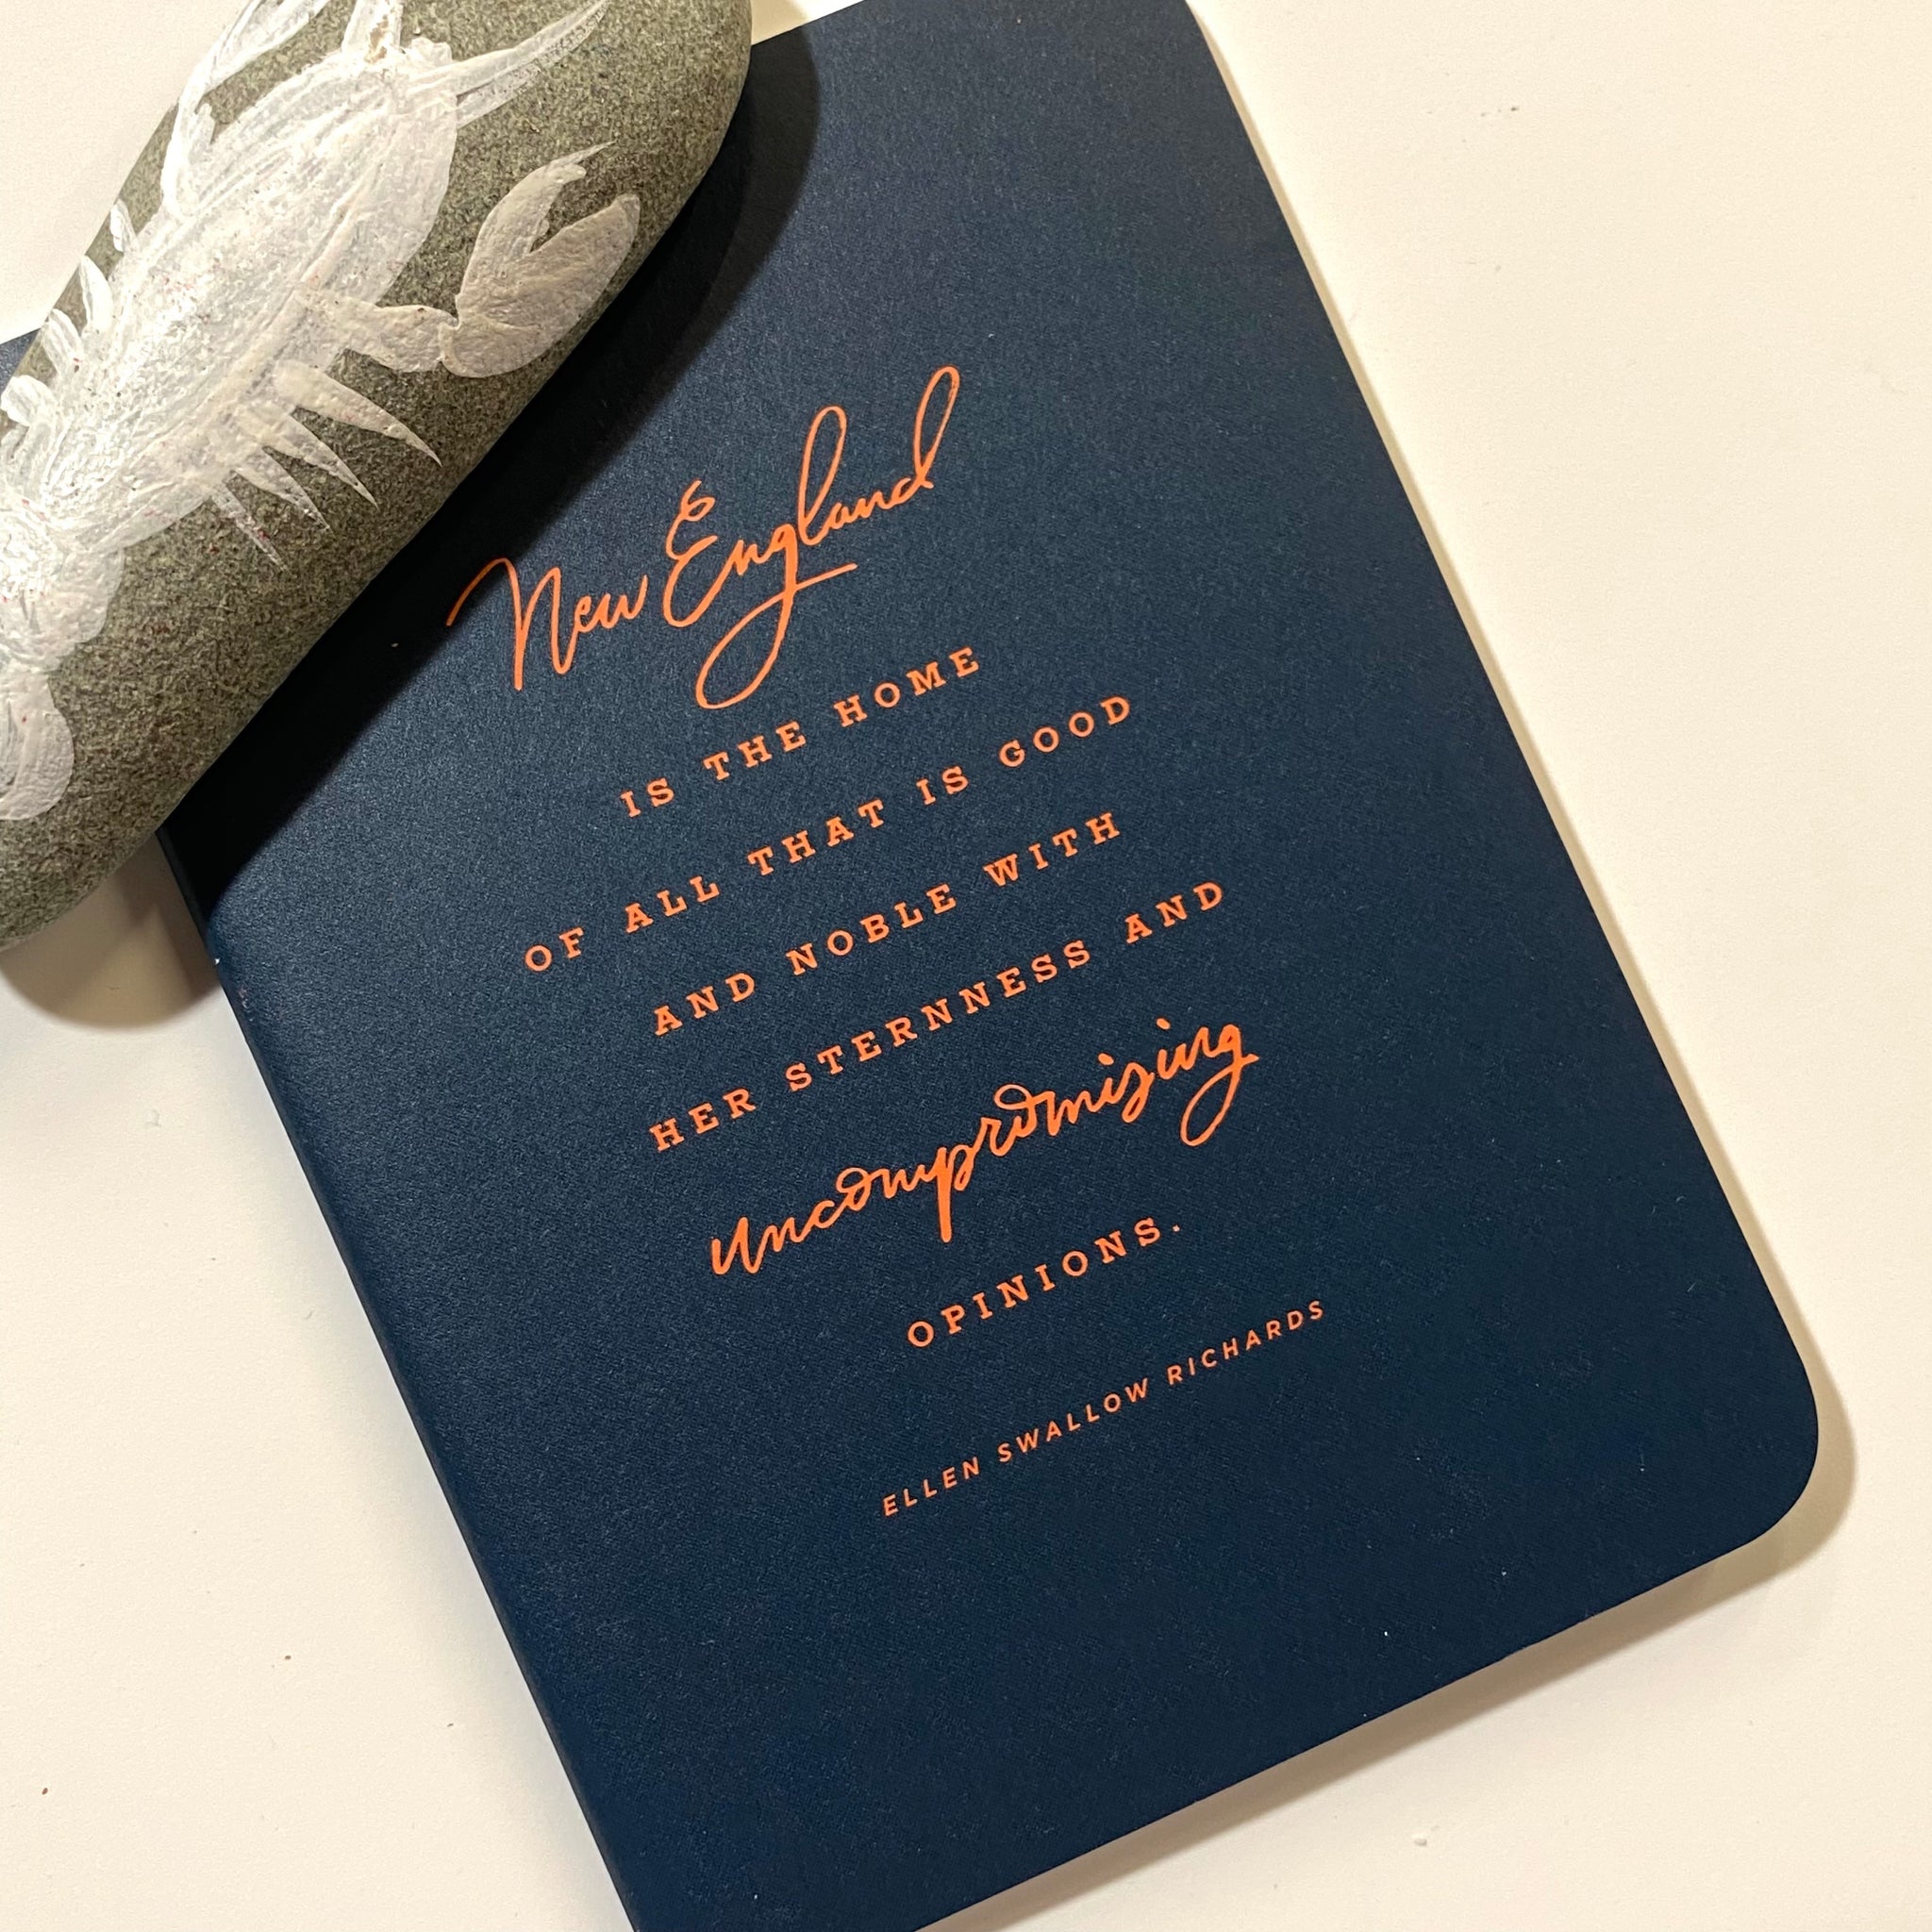 New England
IS THE HOME
OF ALL THAT IS GOOD
AND NOBLE WITH
HER STERNNESS AND
uncompromising
OPINIONS.
ELLEN SWALLOW RICHARDS